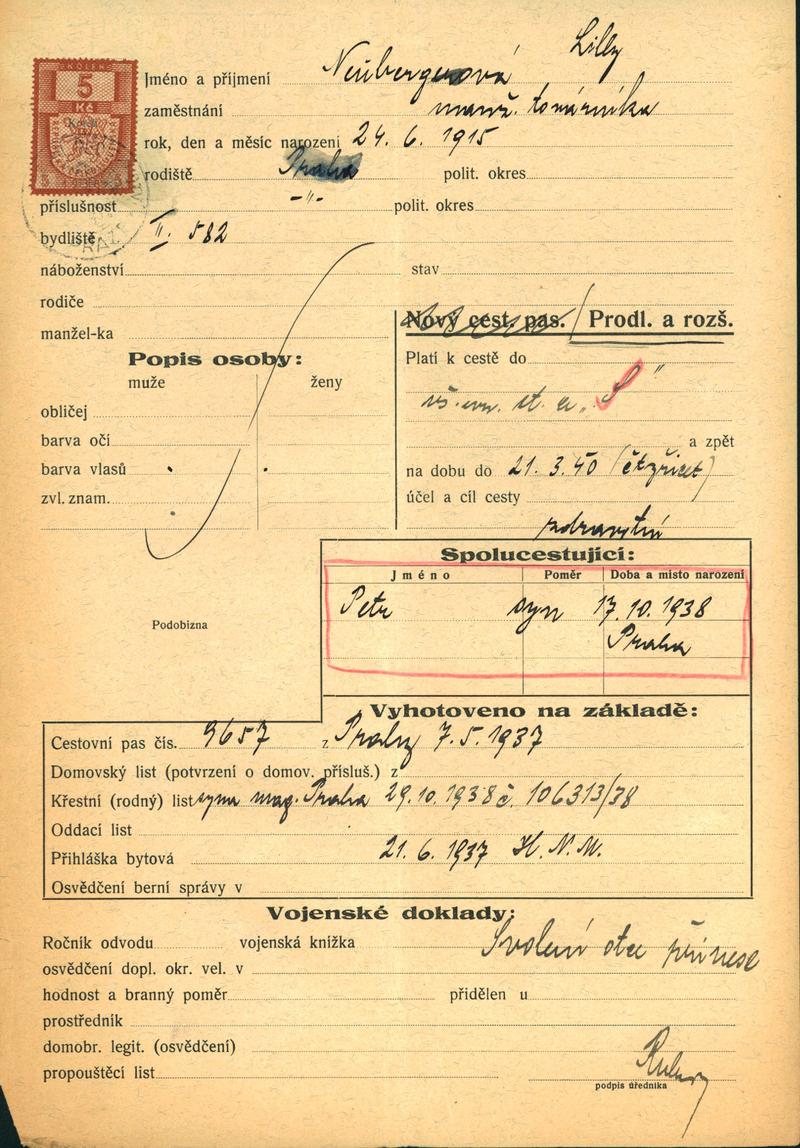 5
Kč
Jméno a příjmení Neubergerová Lilly
zaměstnání manž. továrníka
rok, den a měsíc narození 24. 6. 1915
rodiště Praha polit. okres
příslušnost -"- polit. okres
bydliště II. 582
náboženství stav
rodiče
manžel-ka
Nový cest. pas. / Prodl. a rozš.
Popis osoby:
muže ženy
obličej
barva očí
barva vlasů
zvl. znam.
Platí k cestě do
vš. evr. st. a „S"
a zpět
na dobu do 21. 3. 40 (čtyřicet)
účel a cíl cesty
zdravotní
Spolucestující:
Jméno Poměr Doba a místo narození
Petr syn 17. 10. 1938
Praha
Podobizna
Vyhotoveno na základě:
Cestovní pas čís. 9657 z Prahy 7. 5. 1937
Domovský list (potvrzení o domov. přísluš.) z
Křestní (rodný) list syna mag. Praha 29. 10. 1938 č. 106313/38
Oddací list
Přihláška bytová 21. 6. 1937 H. N. M.
Osvědčení berní správy v
Vojenské doklady:
Ročník odvodu vojenská knížka
Svolení otce přinese
osvědčení dopl. okr. vel. v
hodnost a branný poměr přidělen u
prostředník
domobr. legit. (osvědčení)
propouštěcí list
podpis úředníka